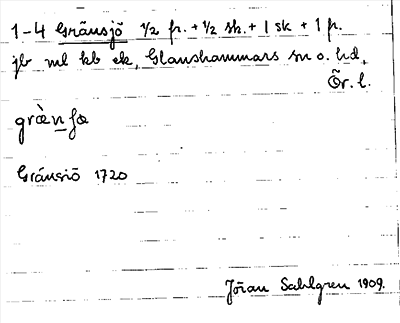 1-4 Gränsjö 1/2 fr. + 1/2 sk. + 1 sk + 1 fr.
jb ml kb ek, Glanshammars sn o. hd,
Ör. l.
græ̀nʃø
Gränsiö 1720
Jöran Sahlgren 1909.